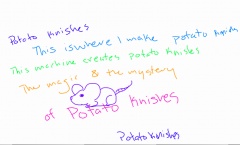 Potato Knishes
This is where I make potato Knishes
This machine creates potato Knishes
The magic & the mystery
of Potato Knishes
Potato Knishes